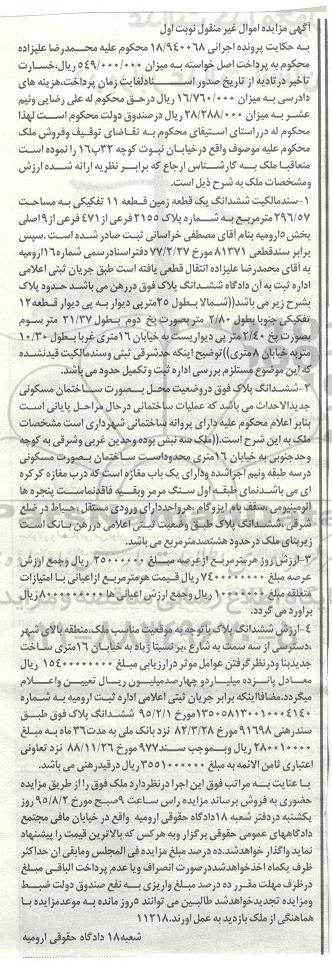 آگهی مزایده اموال غیر منقول نوبت اول
به حکایت پرونده اجرائی ۱۸/۹۴۰۰۶۸ محکوم علیه محمدرضا علیزاده
محکوم به پرداخت اصل خواسته به میزان ۵۴۹/۰۰۰/۰۰۰ ریال،خسارت
تاخیر در تادیه از تاریخ صدور اسناد لغایت زمان پرداخت،هزینه های
دادرسی به میزان ۱۶/۷۶۰/۰۰۰ ریال در حق محکوم له علی رضایی ونیم
عشر به میزان ۲۸/۲۸۸/۰۰۰ ریال در صندوق دولت محکوم است لهذا
محکوم له در راستای استیفای محکوم به تقاضای توقیف وفروش ملک
محکوم علیه موصوف واقع در خیابان نبوت کوچه ۳۲پ۱۶ را نموده است
متعاقبا ملک به کارشناس ارجاع که برابر نظریه ارائه شده ارزش
ومشخصات ملک به شرح ذیل است.
۱-سندمالکیت ششدانگ یک قطعه زمین قطعه ۱۱ تفکیکی به مساحت
۲۹۶/۵۷ مترمربع به شماره پلاک ۲۱۵۵ فرعی از ۴۷۱ فرعی از ۹ اصلی
بخش ۵ ارومیه بنام آقای مصطفی خراسانی ثبت صادر شده است .سپس
برابر سندقطعی ۸۱۳۷۱ مورخ ۷۷/۲/۲۷ دفتر اسناد رسمی شماره۱۶ارومیه
به آقای محمدرضا علیزاده انتقال قطعی یافته است طبق جریان ثبتی اعلامی
اداره ثبت به آن دادگاه ششدانگ پلاک فوق در رهن می باشد حدود پلاک
بشرح زیر می باشد((شمالا بطول ۲۵متر پی دیوار به پی دیوار قطعه۱۲
تفکیکی جنوبا بطول ۲/۸۰ متر بصورت پخ دوم بطول ۲۱/۳۷ متر سوم
بصورت پخ ۲/۴۰ متر پی دیواریست به خیابان ۱۶متری غربا بطول ۱۰/۳۰
متربه خیابان ۸ متری))توضیح اینکه حدشرقی ثبتی وسندمالکیت قیدنشده
که این موضوع مستلزم بررسی اداره ثبت وتکمیل حدود می باشد.
۲-ششدانگ پلاک فوق در وضعیت محل بصورت ساختمان مسکونی
جدیدالاحداث می باشد که عملیات ساختمانی در حال مراحل پایانی است
بنابر اعلام محکوم علیه دارای پروانه ساختمانی شهرداری است مشخصات
ملک به این شرح است.((ملک سه نبش بوده وحدین غربی وشرقی به کوچه
وحدجنوبی به خیابان ۱۶متری محدوداست ساختمان بصورت مسکونی
در سه طبقه ونیم اجراشده ودارای یک باب مغازه است که درب مغازه کرکره
ای می باشدنمای طبقه اول سنگ مرمر وبقیه فاقدنماست پنجره ها
آلومینیومی ،سقف بام ایزوگام ،هرواحددارای ورودی مستقل،حیاط در ضلع
شرقی ،ششدانگ پلاک طبق وضعیت ثبتی اعلامی در رهن بانک است
زیربنای ملک در حدود هشتصدمترمربع می باشد.
۳-ارزش روز هرمترمربع از عرصه مبلغ ۲۵۰۰۰۰۰۰ ریال وجمع ارزش
عرصه مبلغ ۷۴۰۰۰۰۰۰۰۰ ریال قیمت هرمترمربع از اعیانی با امتیازات
متعلقه مبلغ ۱۰۰۰۰۰۰۰ ریال وجمع ارزش اعیانی ها ۸۰۰۰۰۰۰۰۰۰ ریال
برآورد می گردد.
۴-ارزش ششدانگ پلاک باتوجه به موقعیت مناسب ملک،منطقه بالای شهر
،دسترسی از سه سمت به شارع ،بر نسبتا زیاد به خیابان ۱۶متری ساخت
جدیدبنا ودرنظرگرفتن عوامل موثر در ارزیابی مبلغ ۱۵۴۰۰۰۰۰۰۰۰ ریال
معادل پانزده میلیاردو چهارصدمیلیون ریال تعیین واعلام
میگردد.مضافااینکه برابر جریان ثبتی اعلامی اداره ثبت ارومیه به شماره
۱۳۵۰۰۵۸۱۳۰۰۱۰۰۰۴۱۴۰ مورخ ۹۵/۲/۱ ششدانگ پلاک فوق طبق
سندرهنی ۹۱۶۹۸ مورخ ۸۲/۳/۲۸ نزد بانک ملی به مدت۳۶ ماه به مبلغ
۲۸۰۰۱۰۰۰۰ ریال وبموجب سند۹۷۷ مورخ ۸۸/۱۱/۲۶ نزد تعاونی
اعتباری ثامن الائمه به مبلغ ۳۵۵۱۰۰۰۰۰۰ ریال در قیدرهنی می باشد.
با عنایت به مراتب فوق این اجرا درنظر دارد ملک فوق را از طریق مزایده
حضوری به فروش برساند مزایده راس ساعت ۹صبح مورخ ۹۵/۸/۲ روز
یکشنبه دردفتر شعبه ۱۸دادگاه حقوقی ارومیه واقع در خیابان مافی مجتمع
دادگاههای عمومی حقوقی برگزار وبه هرکس که بالاترین قیمت را پیشنهاد
نماید واگذار خواهدشد.ده درصد مبلغ مزایده فی المجلس ومابقی آن حداکثر
ظرف یکماه اخذخواهدشددر صورت انصراف ویا عدم پرداخت الباقی مبلغ
در ظرف مهلت مقرر ده درصد مبلغ واریزی به نفع صندوق دولت ضبط
ومزایده تجدیدخواهدشد طالبین می توانند ۵روز مانده به موعدمزایده با
هماهنگی از ملک بازدید به عمل آورند.۱۱۲۱۸
شعبه۱۸ دادگاه حقوقی ارومیه